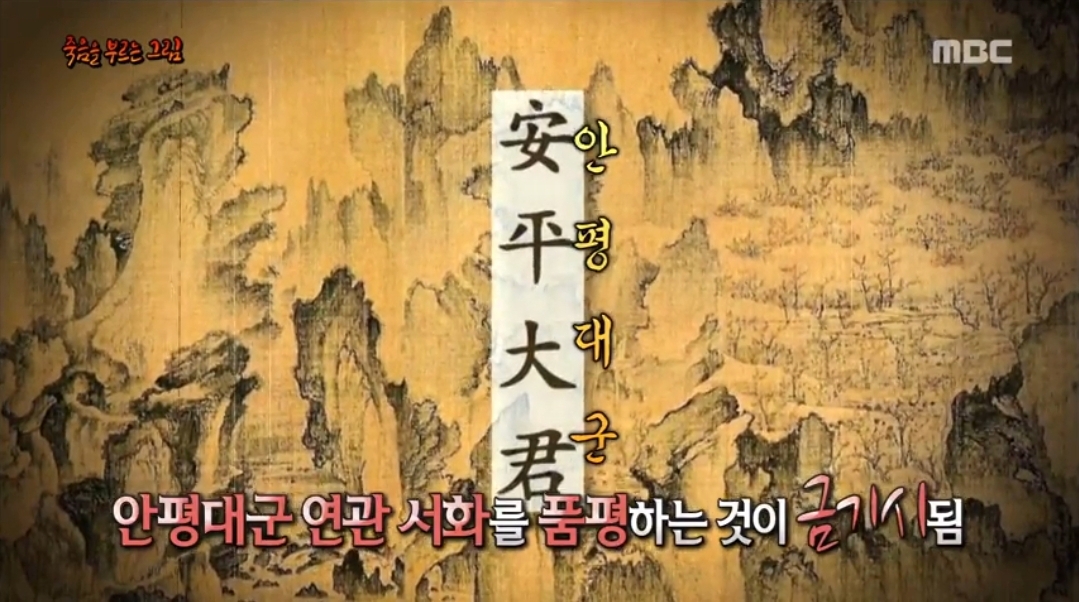 죽음을 부르는 그림
MBC
安平大君
안평대군
안평대군 연관 서화를 품평하는 것이 금기시됨